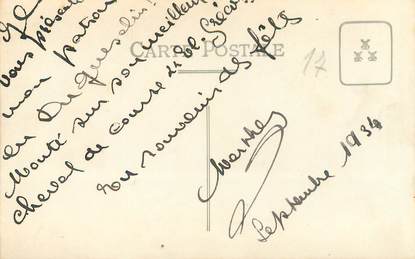 Je
vous présente
mon patron
en Duguesclin!
Monté sur son meilleur
cheval de course
En souvenir des fêtes
Marthe
Septembre 1934
CARTE POSTALE
17